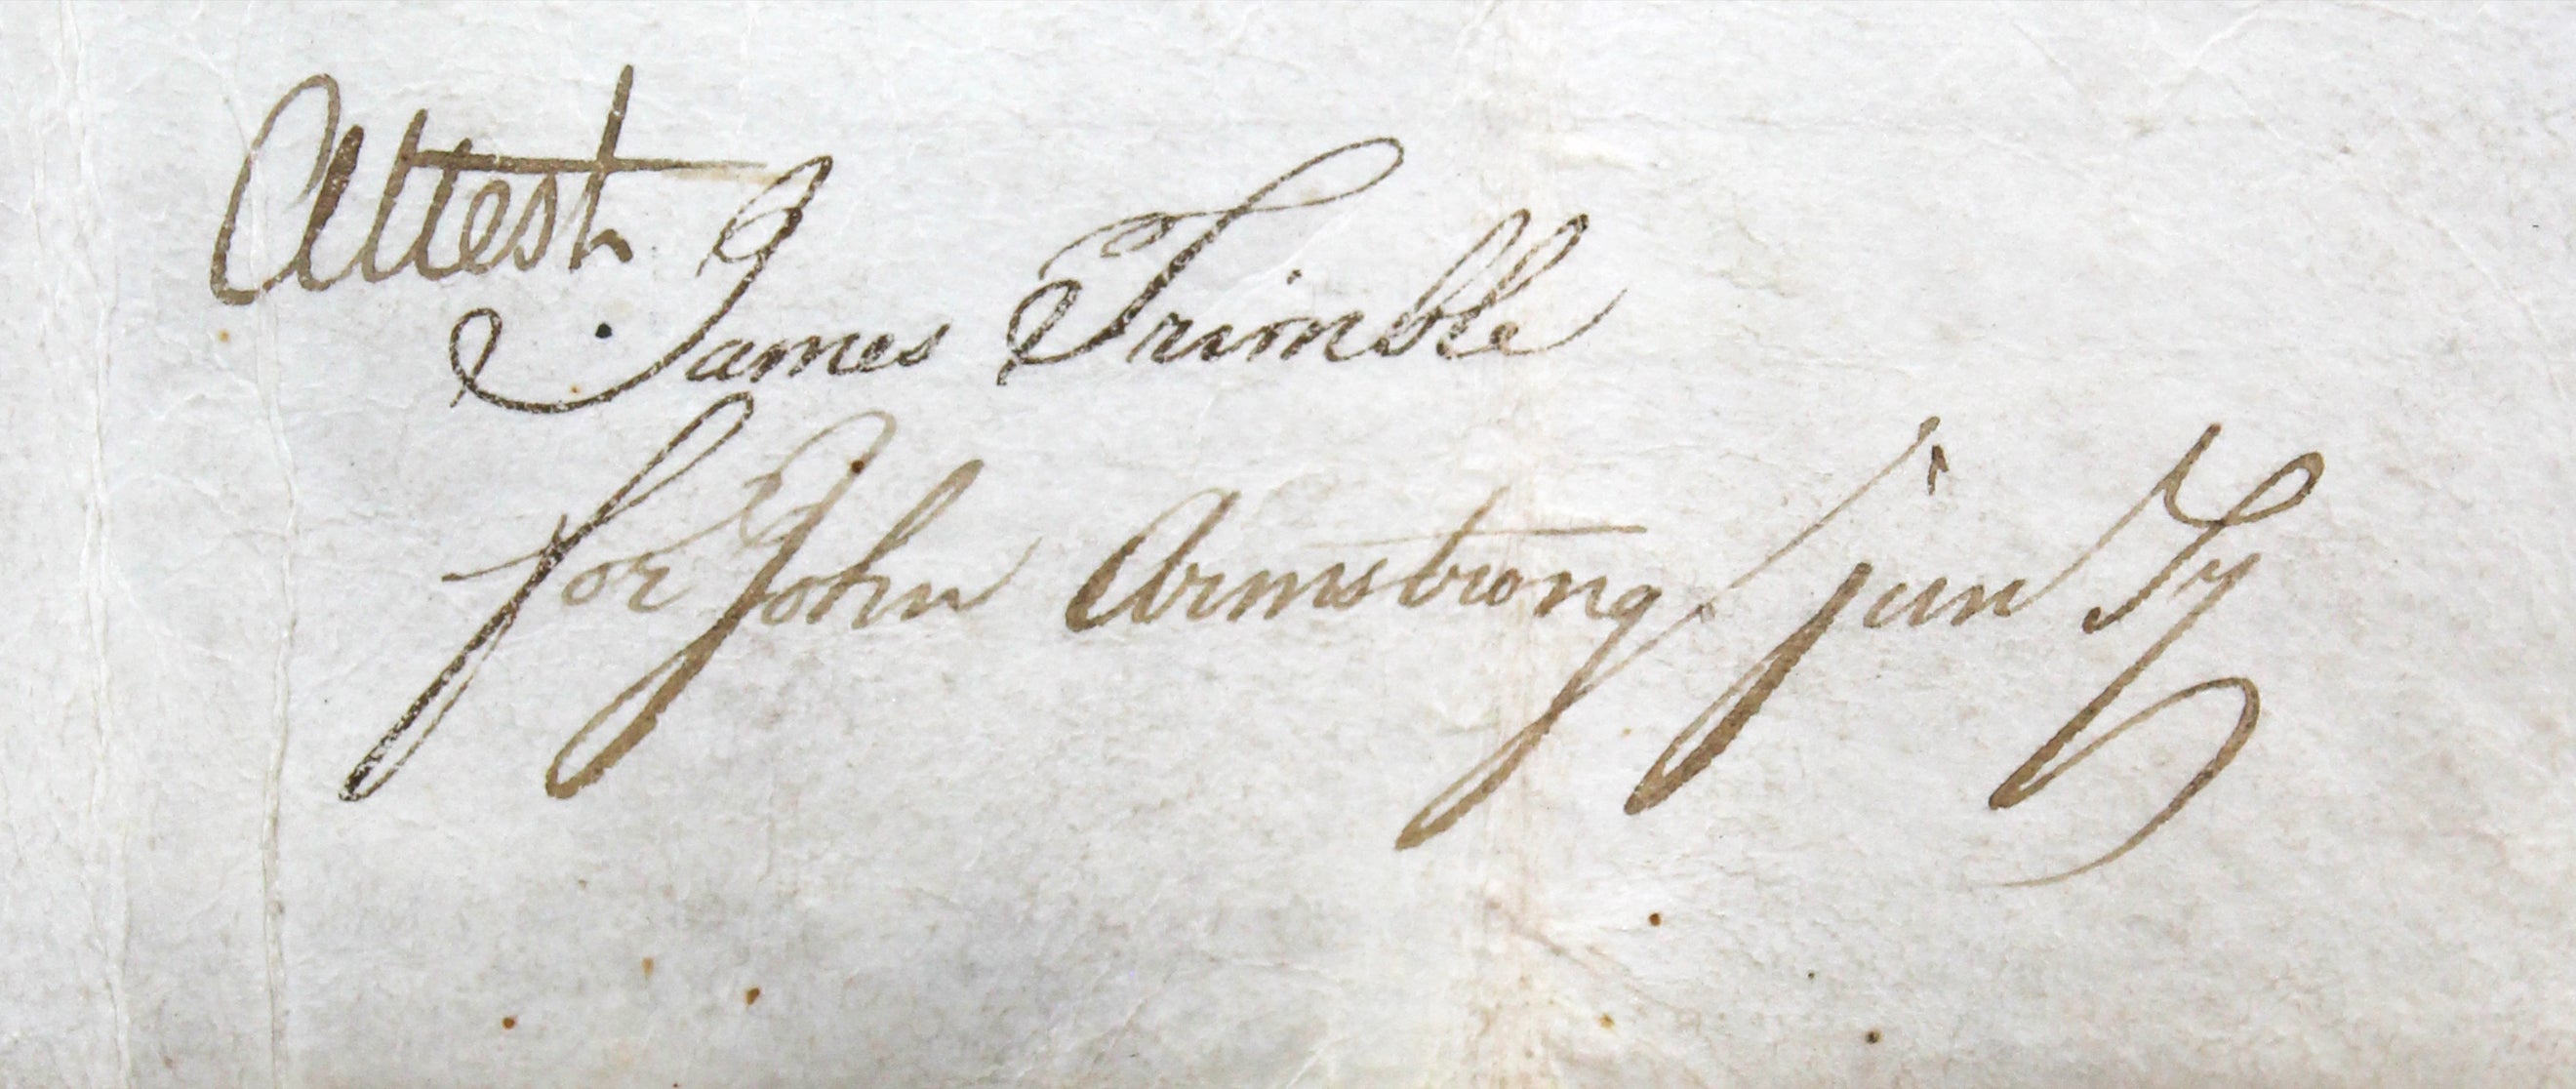 Attest
James Trimble
for John Armstrong jun Sy